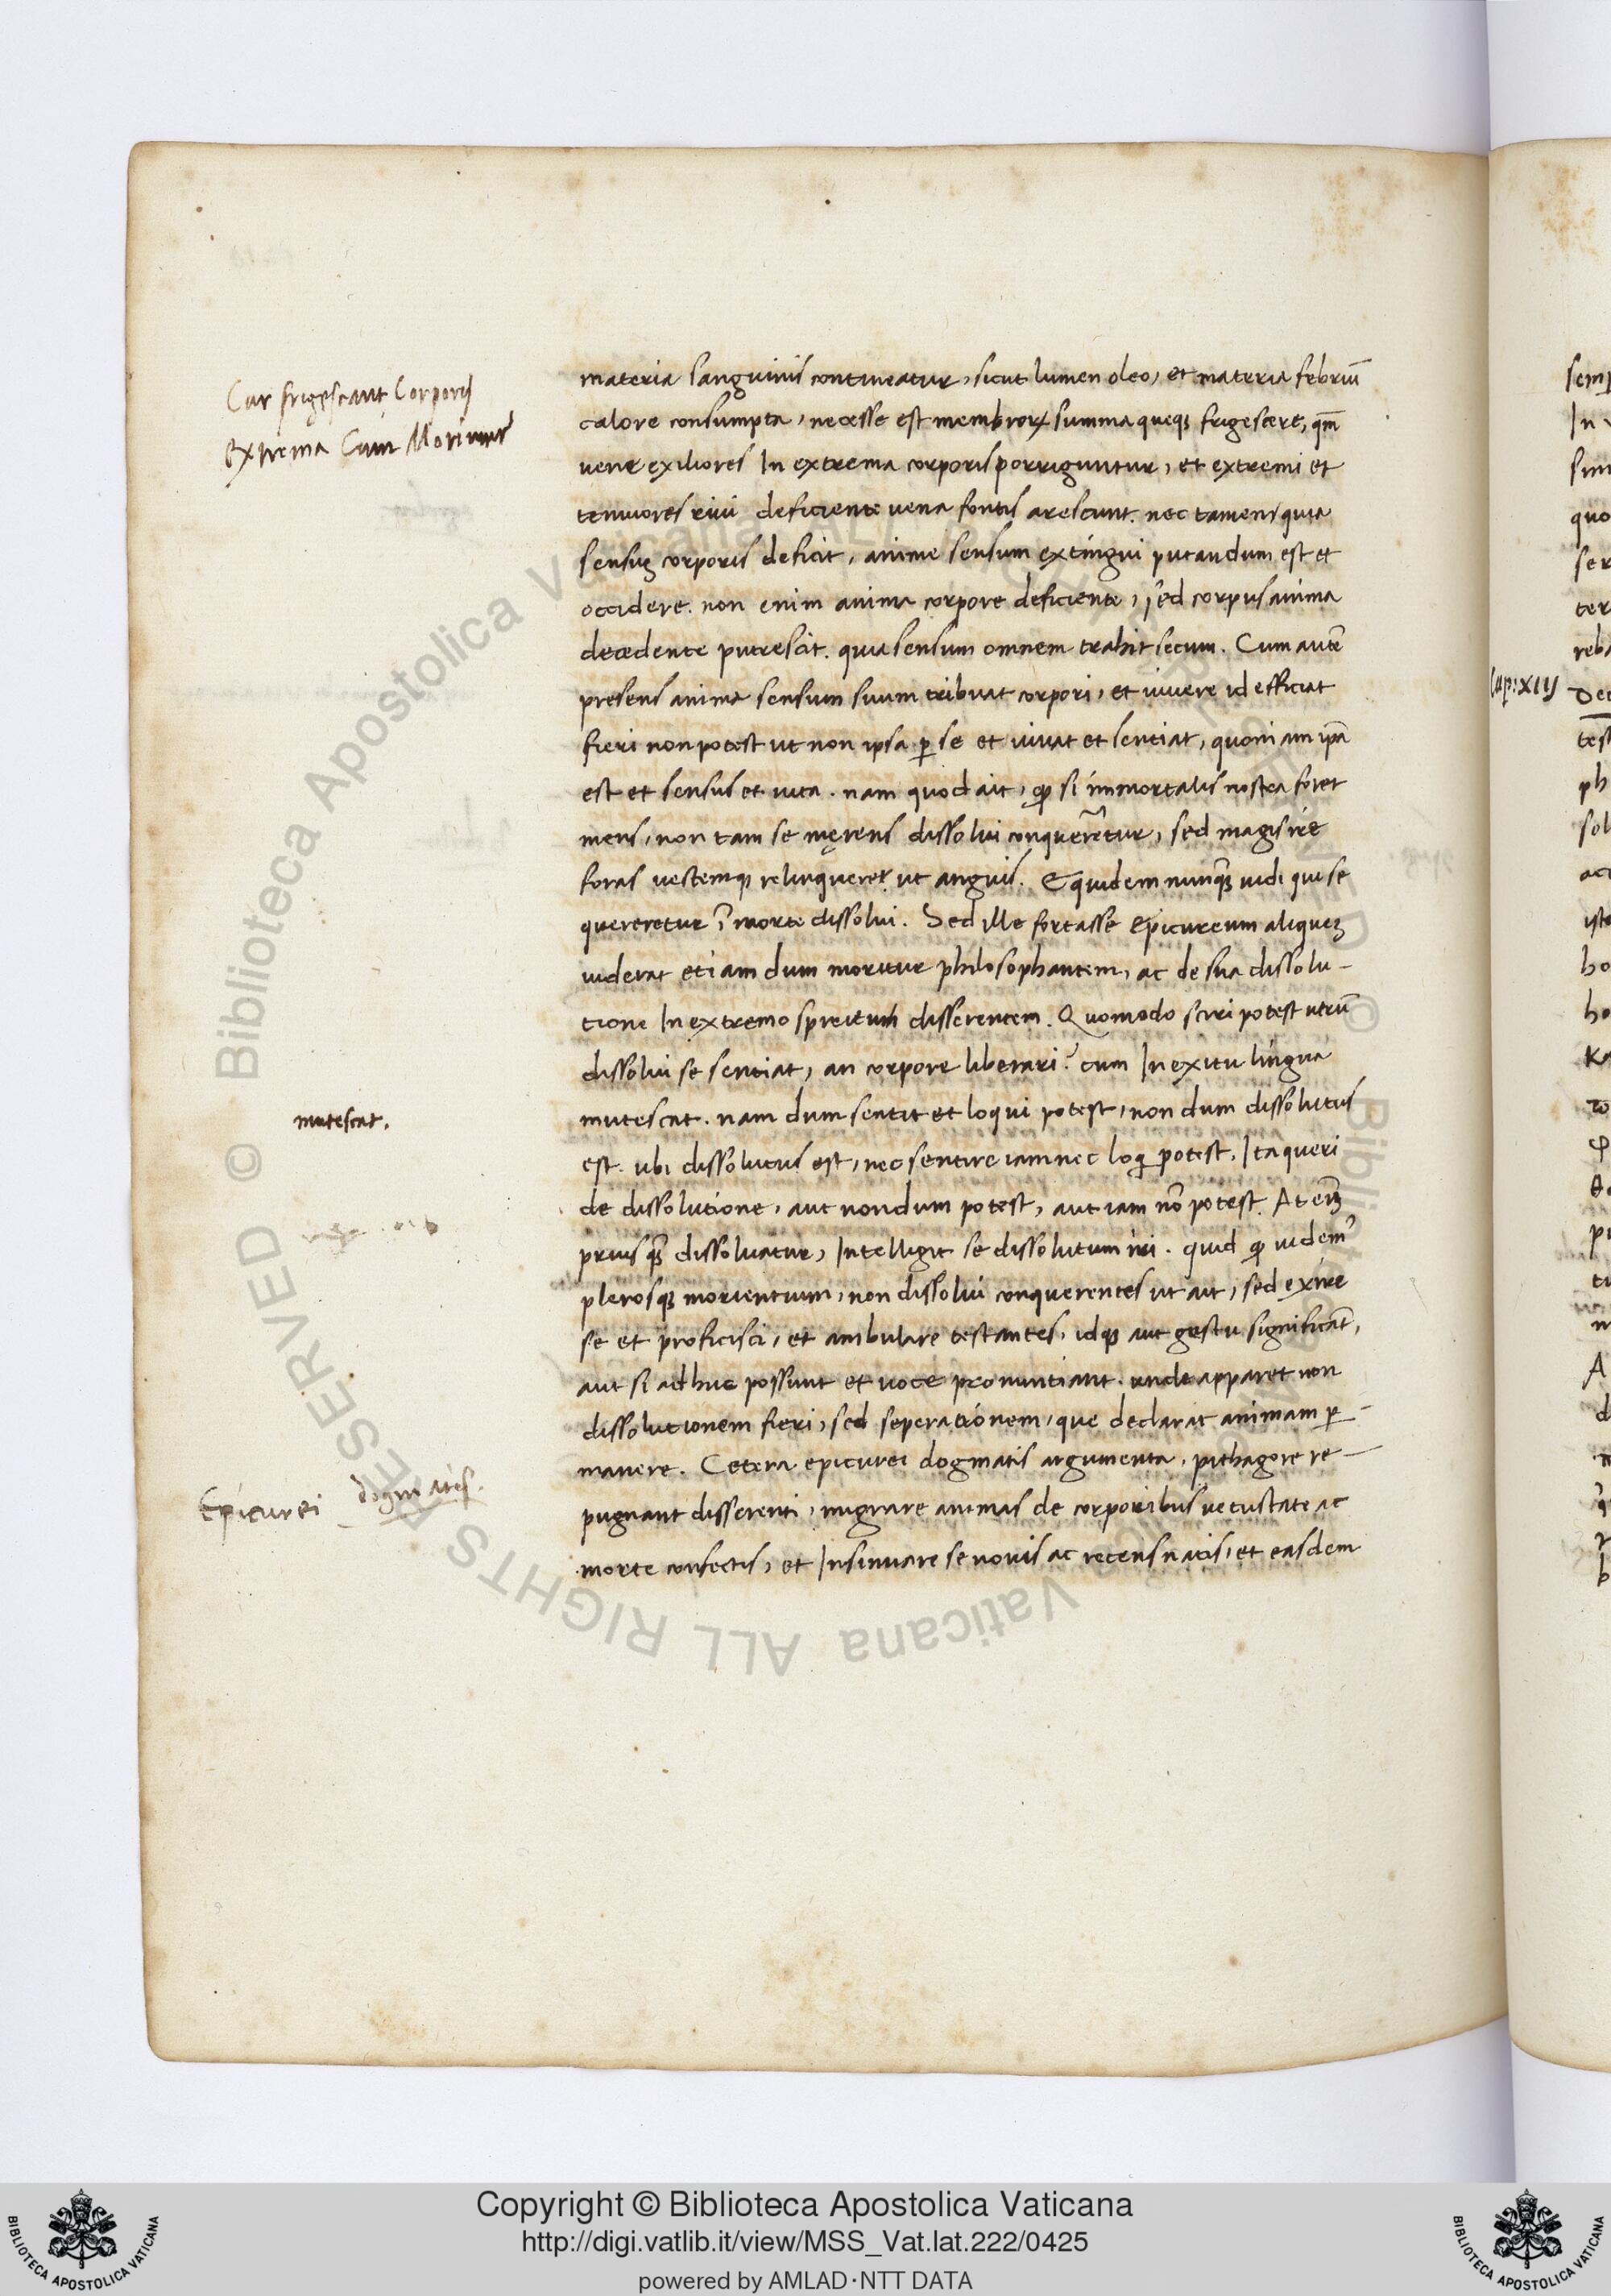 Cur frigescant Corporis
extrema Cum Moriuntur
materia sanguinis contineatur, sicut lumen oleo, et materia febriū
calore consumpta, necesse est membroꝝ summa queqꝫ frigescere, qm̄
vene exiliores In extrema corporis porriguntur, et extremi et
tenuiores riui deficiente uena fontis arescunt. nec tamen quia
sensus corporis deficit, anime sensum extingui putandum est et
occidere. non enim anima corpore deficiente, sed corpus anima
decedente putrescit. quia sensum omnem trahit secum. Cum autē
presens anima sensum suum tribuat corpori, et uiuere id efficiat
fieri non potest ut non ipsa ꝑ se et uiuat et sentiat, quoniam ip̄a
est et sensus et uita. nam quod ait, ꝙ si immortalis nostra foret
mens, non tam se męrens dissolui conquereretur, sed magis ire
foras uestemqꝫ relinqueret ut anguis. Equidem nunqꝫ uidi qui se
quereretur ī morte dissolui. Sed ille fortasse epicureum aliquem
uiderat etiam dum moritur philosophantem, ac de sua dissolu-
tione In extremo spreitum disserentem. Quomodo sciri potest utrū
dissolui se sentiat, an corpore liberari? cum In exitu lingua
mutescat.
mutescat. nam dum sentit et loqui potest, non dum dissolutus
est. ubi dissolutus est, nec sentire iam nec loqi potest. Ita queri
de dissolutione, aut nondum potest, aut iam nō potest. At enī
priusqꝫ dissoluatur, Intelligit se dissolutum iri. quid ꝙ uidem᾽
plerosqꝫ morientium, non dissolui conquerentes ut ait, sed exire
se et proficisci, et ambulare testantes, idqꝫ aut gestu significāt,
aut si adhuc possunt et uoce pronuntiant. unde apparet non
dissolutionem fieri, sed seperationem, que declarat animam ꝑ-
manere. Cetera epicurei dogmatis argumenta, pithagore re-
Epicurei dogmatis.
pugnant disserenti, migrare animas de corporibus uetustate ac
morte confectis, et Insinuare se nouis ac recens natis, et easdem
Cap: xiij
Copyright © Biblioteca Apostolica Vaticana
http://digi.vatlib.it/view/MSS_Vat.lat.222/0425
powered by AMLAD·NTT DATA
BIBLIOTECA APOSTOLICA VATICANA
BIBLIOTECA APOSTOLICA VATICANA
© Biblioteca Apostolica Vaticana ALL RIGHTS RESERVED